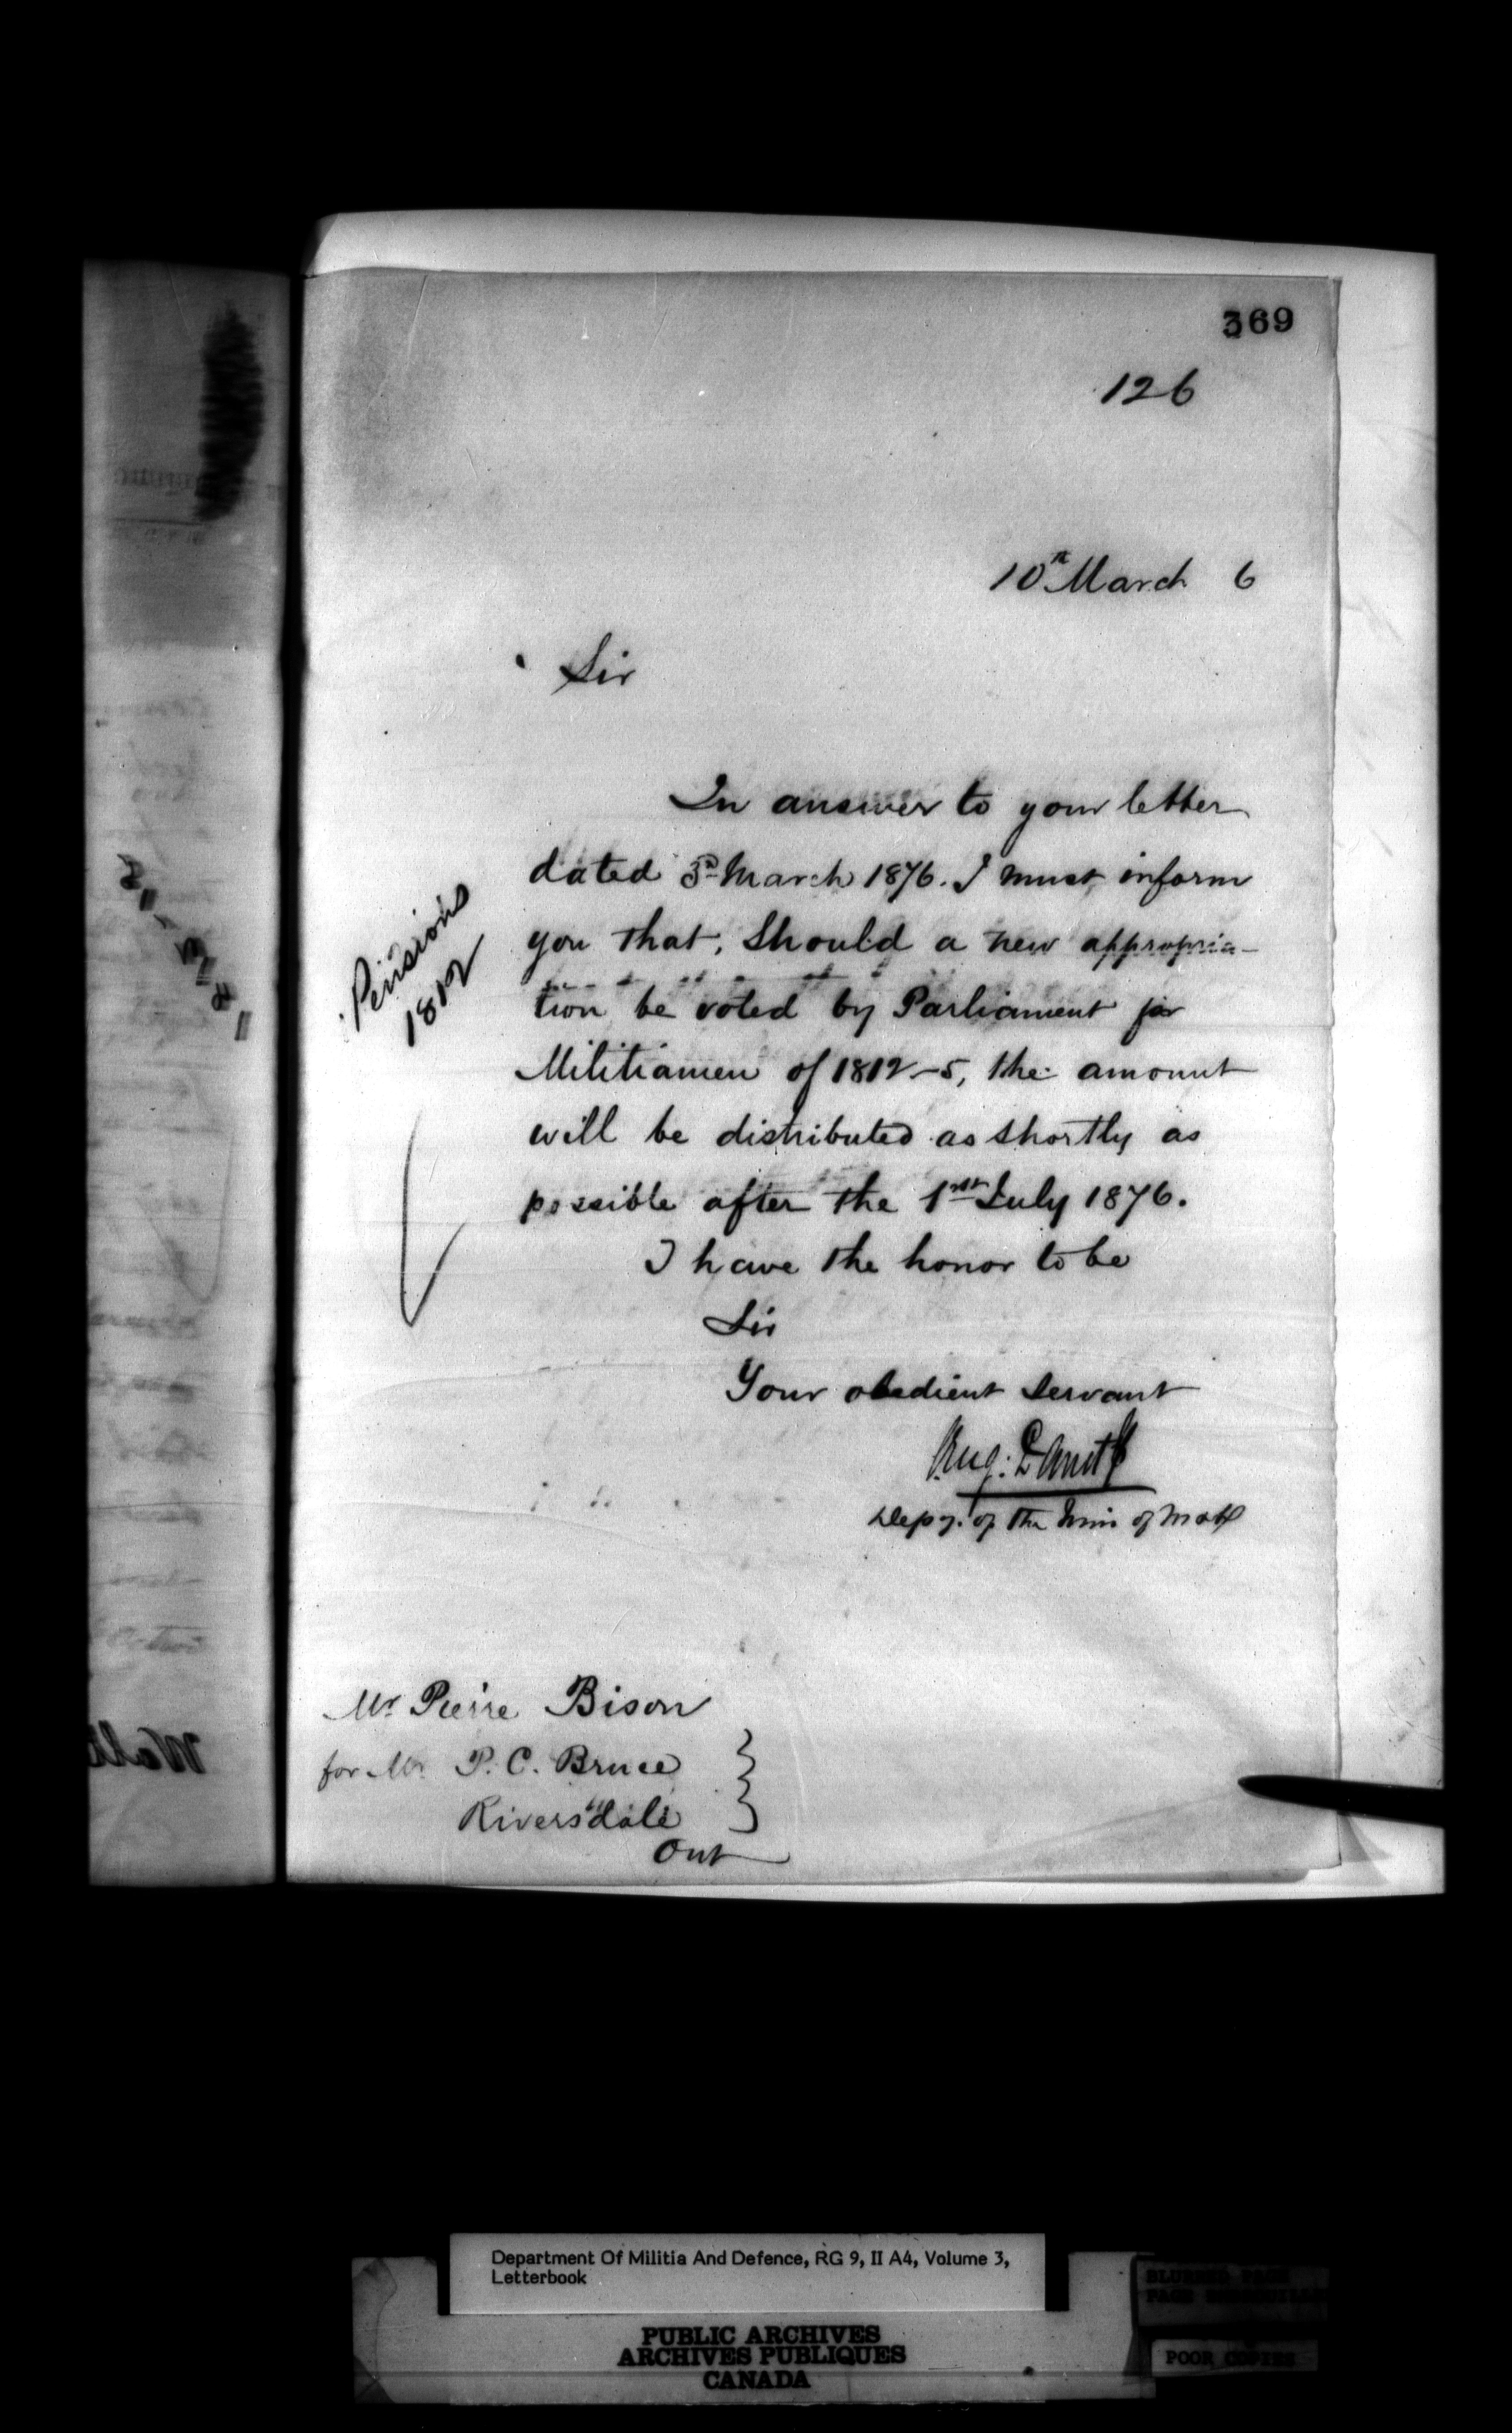 369
126
10th March 6
Sir
In answer to your letter
dated 3rd March 1876. I must inform
you that, should a new appropria-
tion be voted by Parliament for
Militiamen of 1812-5, the amount
will be distributed as shortly as
possible after the 1rst July 1876.
I have the honor to be
Sir
Your obedient Servant
Depy. of the Min of M &
Pensions
1812
Mr Pierre Bison
for Mr P. C. Bruce
Riversdale
Ont
Department Of Militia And Defence, RG 9, II A4, Volume 3,
Letterbook
PUBLIC ARCHIVES
ARCHIVES PUBLIQUES
CANADA
BLURRED PAGE
POOR COPIES